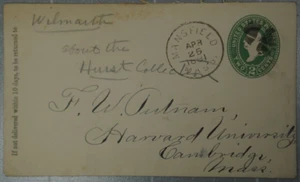 If not delivered within 10 days, to be returned to
Wilmarth
about the
Hurst Collec
MANSFIELD
APR
25
MASS.
F. W. Putnam,
Harvard University
Cambridge,
Mass.